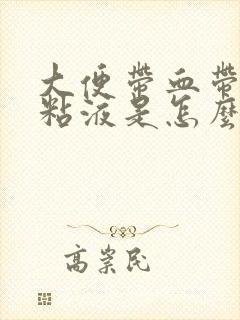 大便带血带
粘液是怎麽
高崇民